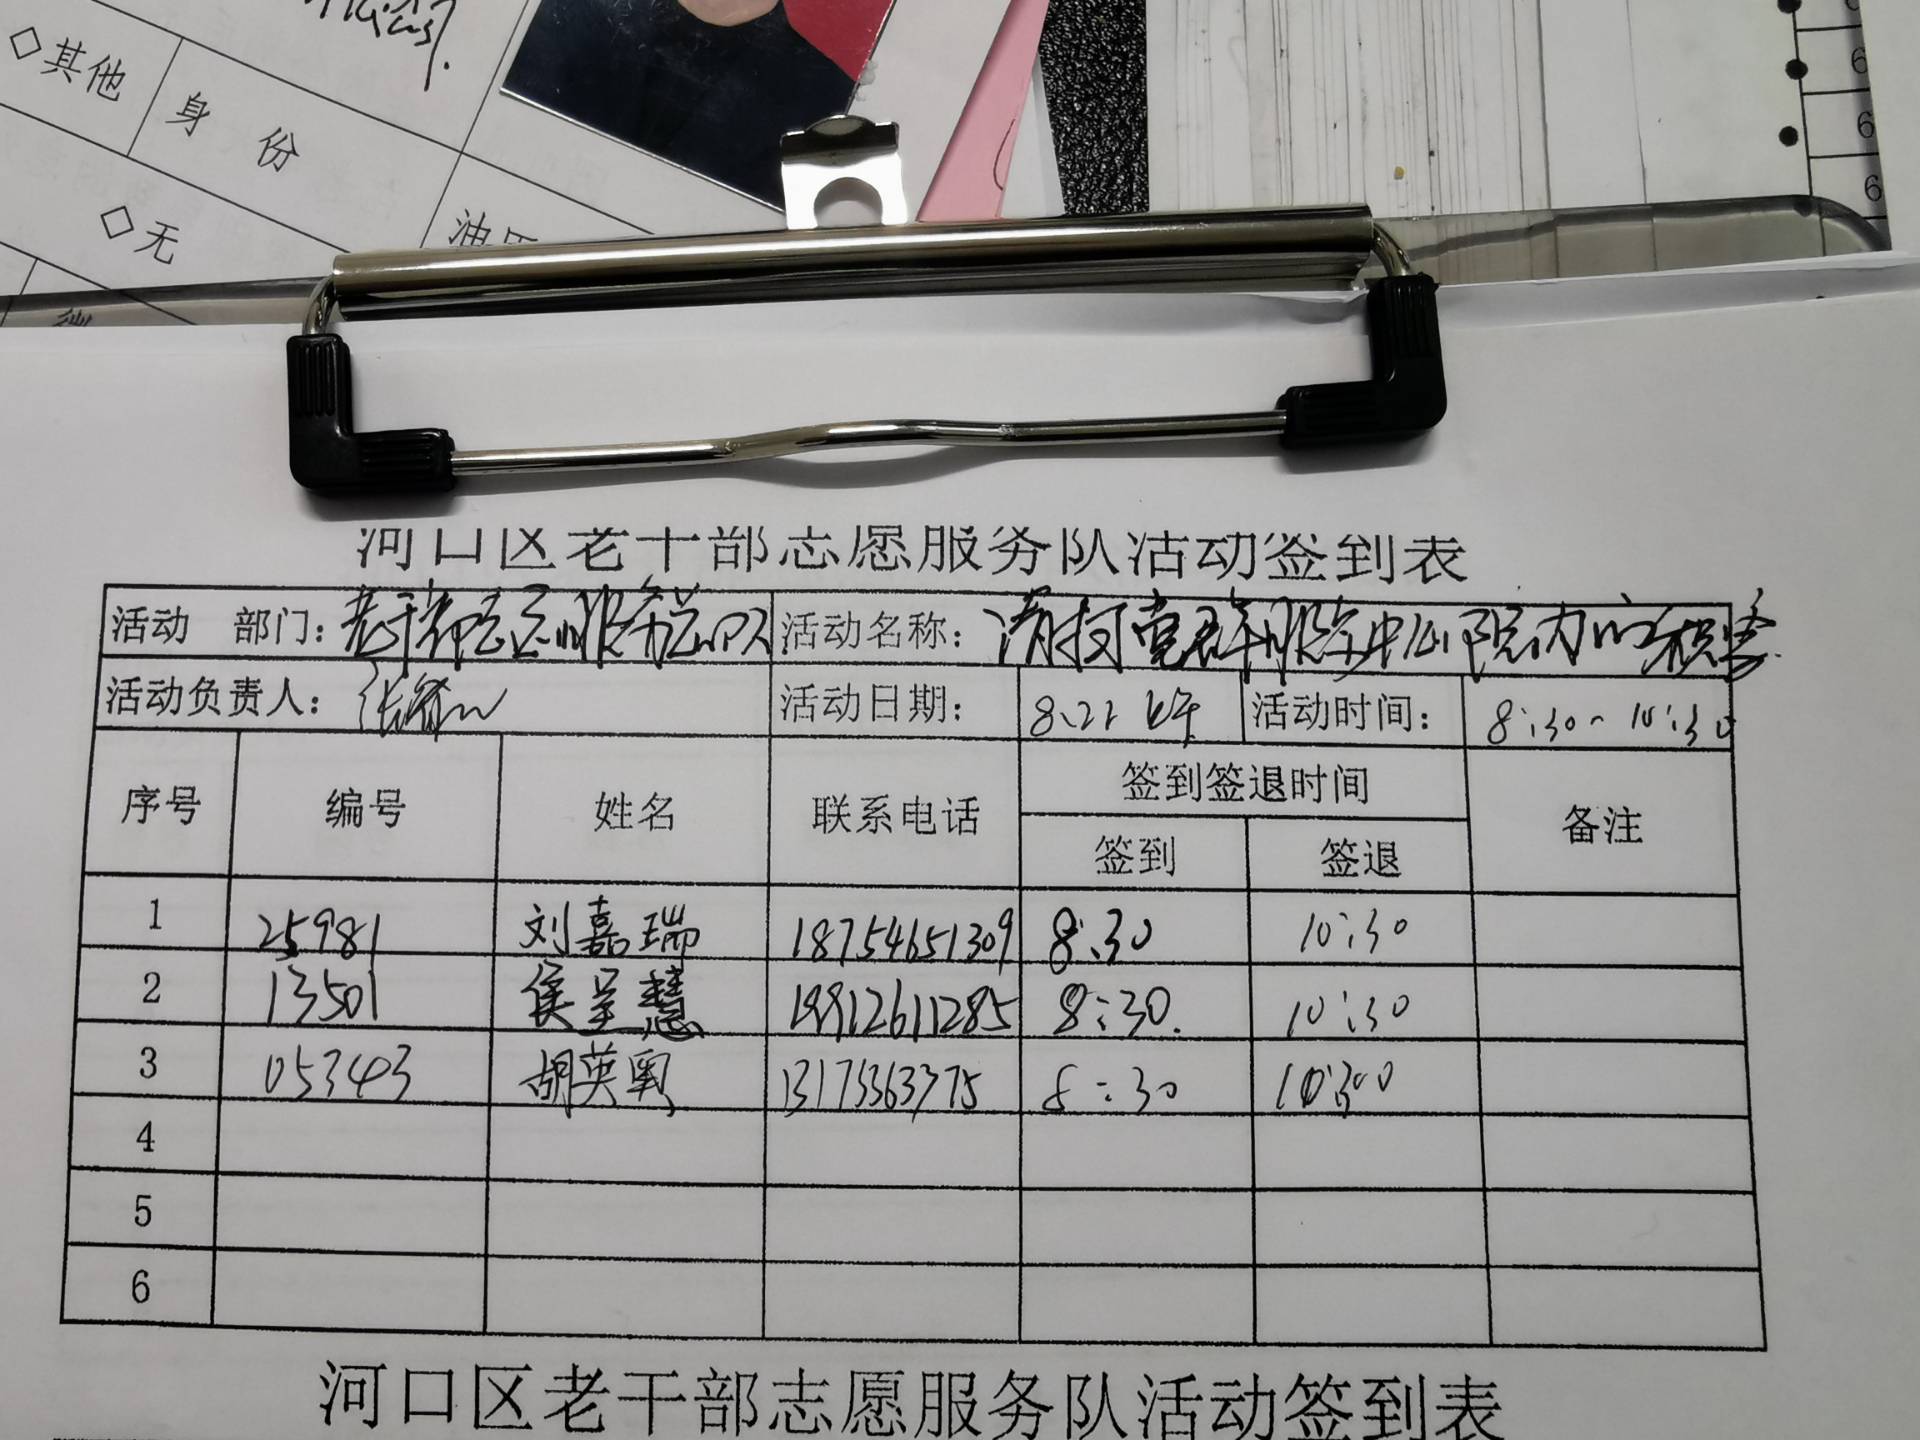 ◇其他
身 份
◇无
油区
6
6
6
河口区老干部志愿服务队活动签到表
活动 部门：老干部志愿服务总队 活动名称：清扫党群服务中心院内的积雪
活动负责人： 活动日期： 8.21 活动时间： 8:30～10:30
序号 编号 姓名 联系电话 签到签退时间 备注
签到 签退
1 25981 刘嘉瑞 18754651309 8:30 10:30
2 13501 侯呈慧 19912611285 8:30. 10:30
3 05343 胡英 13175363775 8:30 10:30
4
5
6
河口区老干部志愿服务队活动签到表